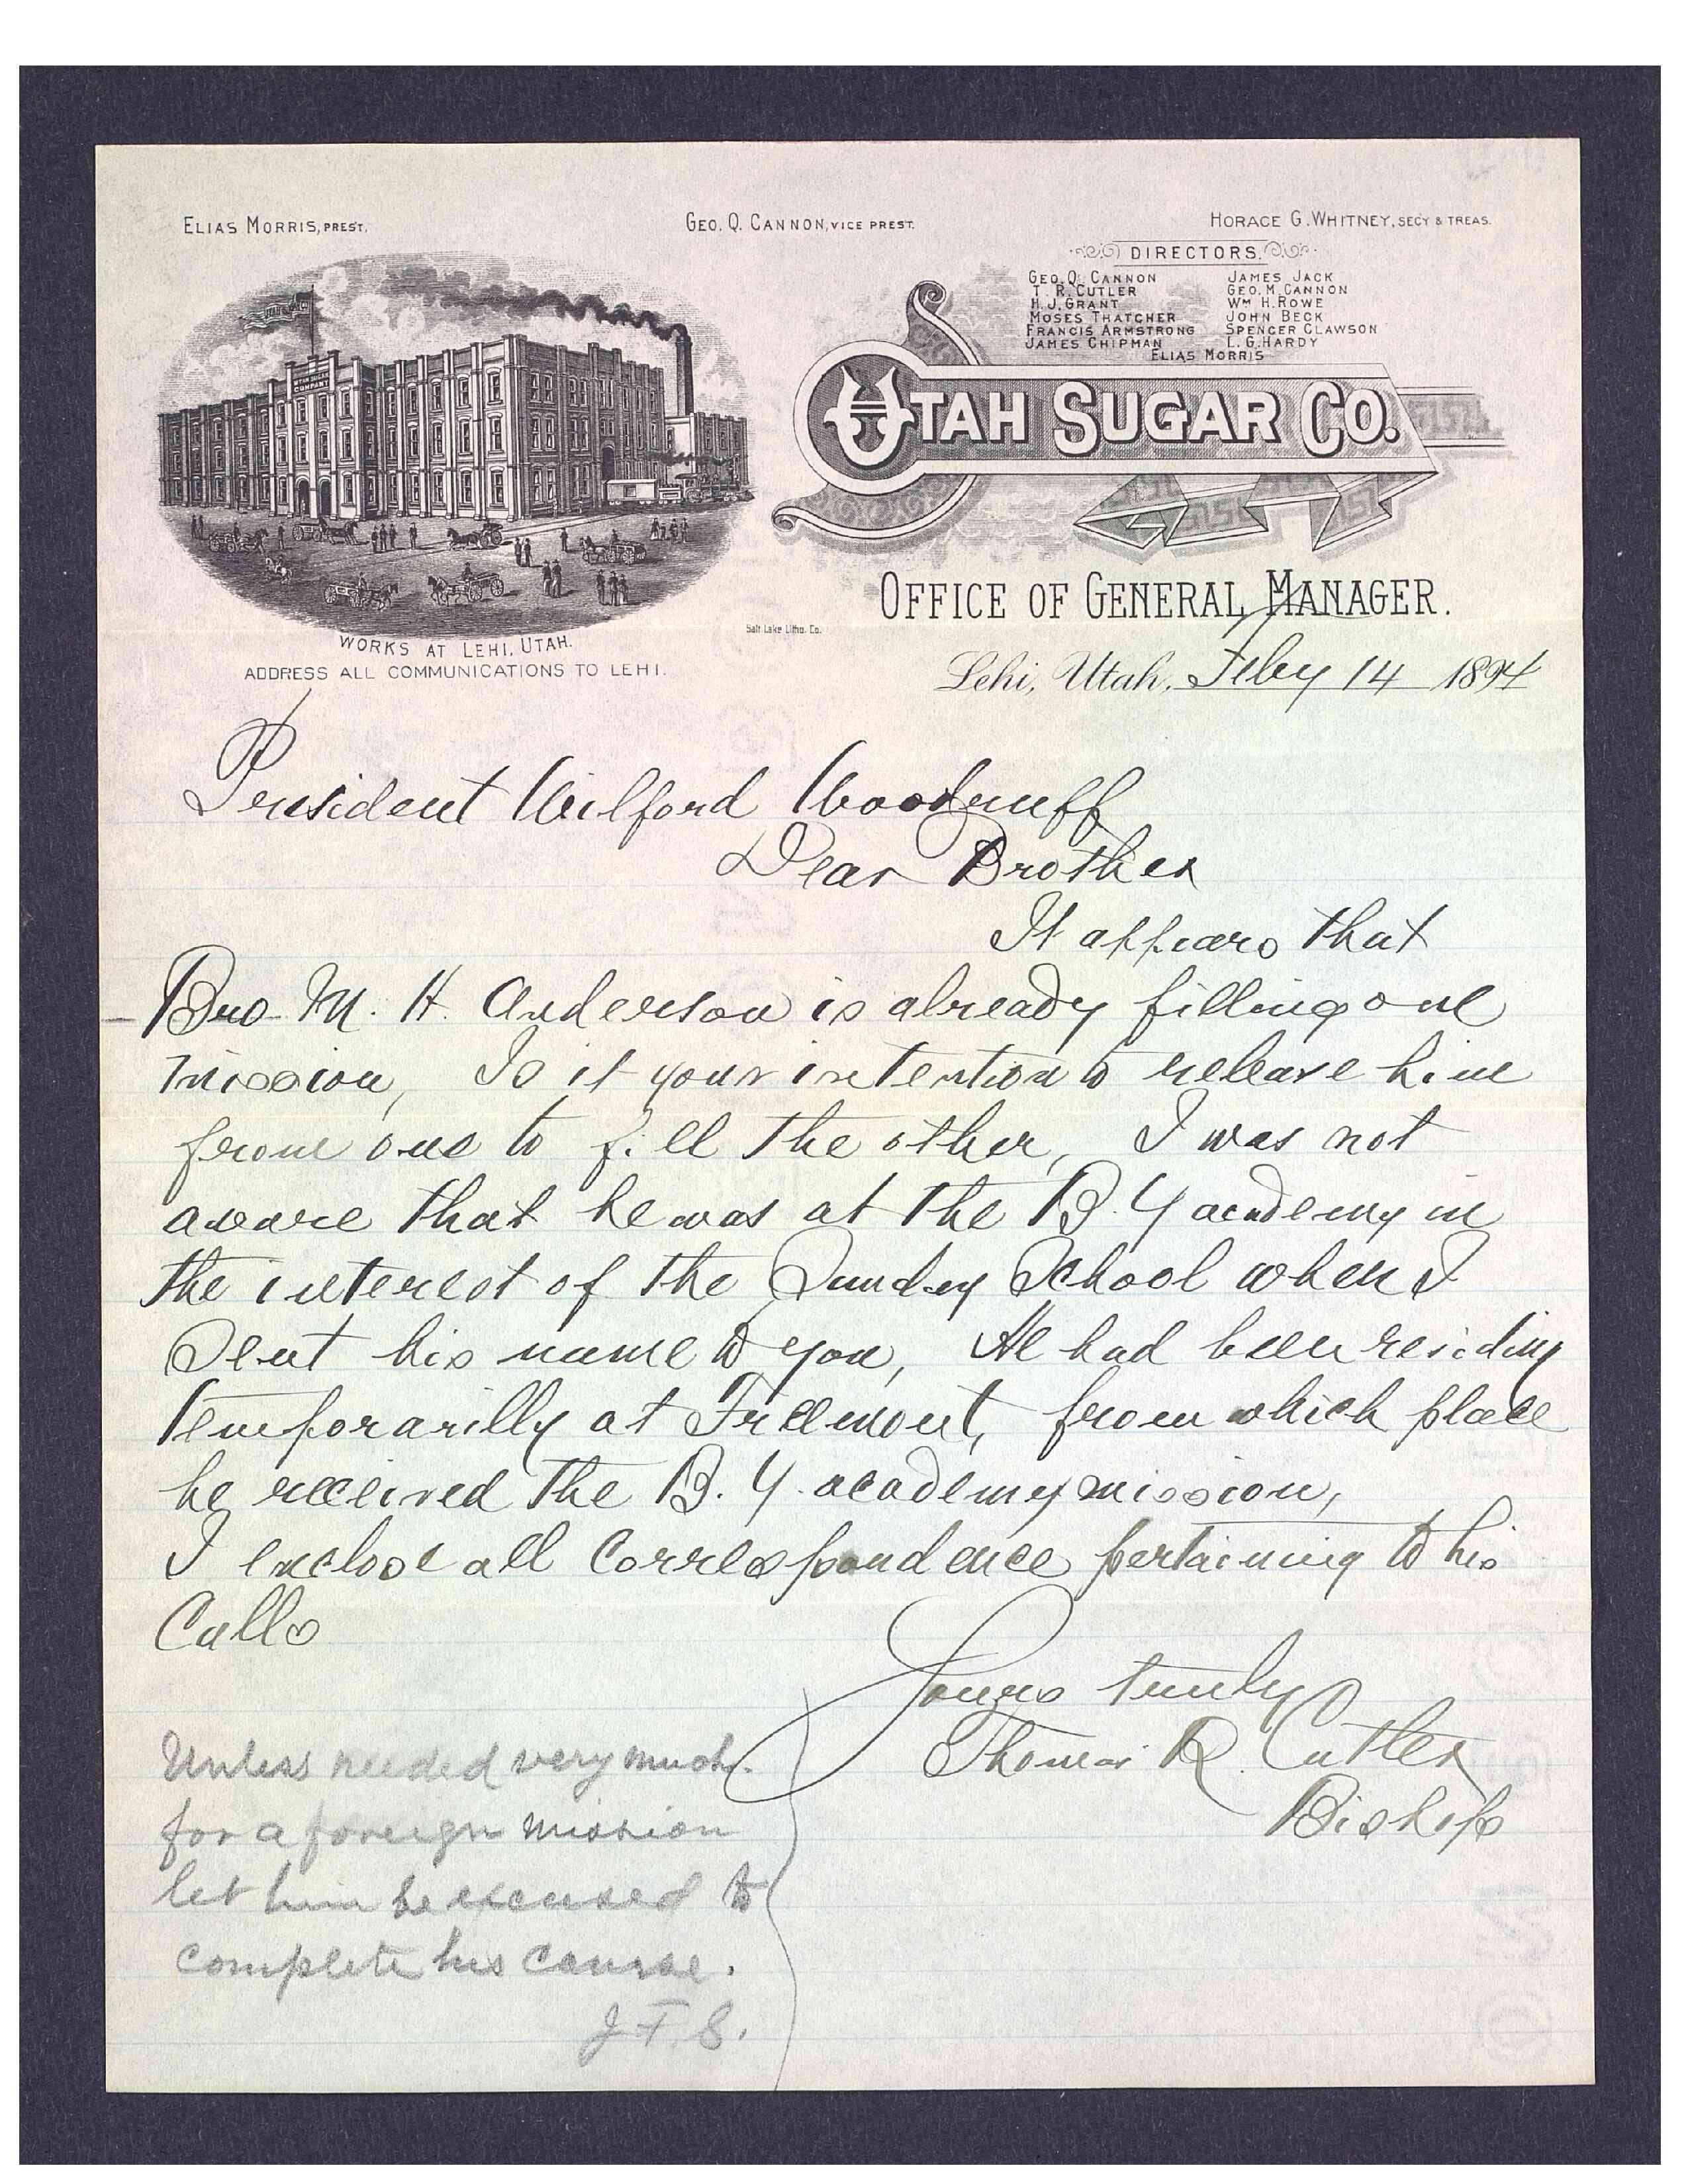 ELIAS MORRIS, PREST.
GEO. Q. CANNON, VICE PREST.
HORACE G. WHITNEY, SECY & TREAS.
DIRECTORS.
GEO. Q. CANNON JAMES JACK
T. R. CUTLER GEO. M. CANNON
H. J. GRANT WM H. ROWE
MOSES THATCHER JOHN BECK
FRANCIS ARMSTRONG SPENCER CLAWSON
JAMES CHIPMAN L. G. HARDY
ELIAS MORRIS
UTAH SUGAR COMPANY
UTAH SUGAR CO.
OFFICE OF GENERAL MANAGER.
Salt Lake Litho. Co.
WORKS AT LEHI, UTAH.
ADDRESS ALL COMMUNICATIONS TO LEHI.
Lehi, Utah, Feby 14 1894
President Wilford Woodruff
Dear Brother
It appears that
Bro M. H. Anderson is already filling one
mission, Is it your intention to release him
from one to fill the other, I was not
aware that he was at the B. Y academy in
the interest of the Sunday School when I
sent his name to you, He had been residing
temporarilly at Freemont, from which place
he received the B. Y. academy mission,
I enclose all correspondence pertaining to his
Calls
Yours truly
Thomas R. Cutler
Bishop
Unless needed very much
for a foreign mission
let him be excused to
complete his course.
J. F. S.